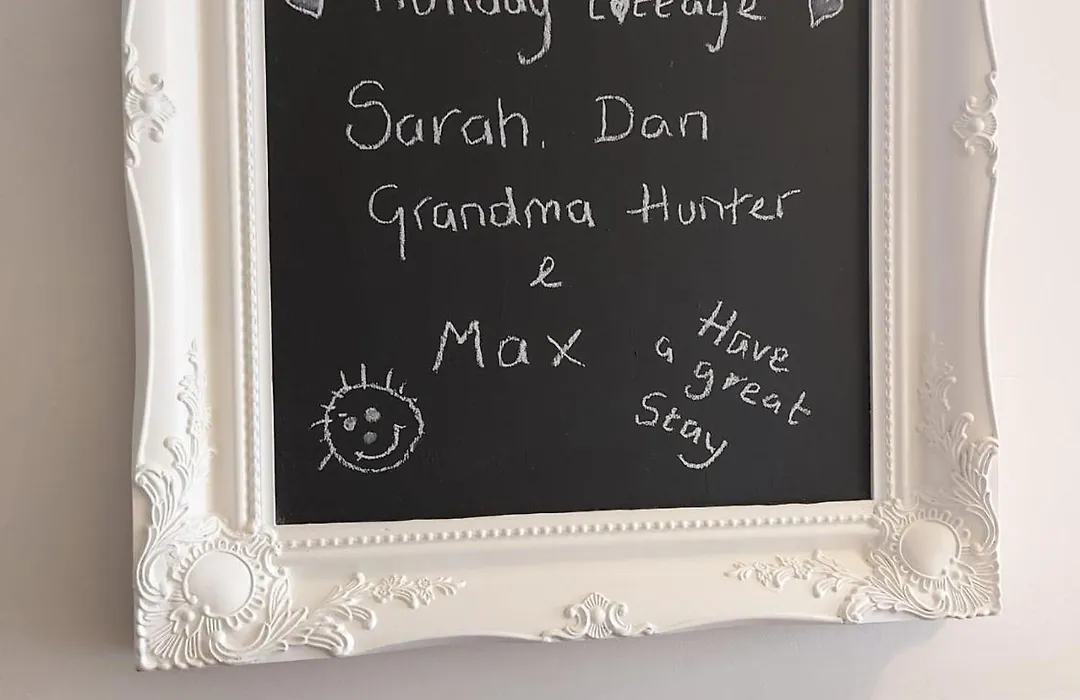 Cottage
Sarah, Dan
Grandma Hunter
e
Max
Have
a great
Stay